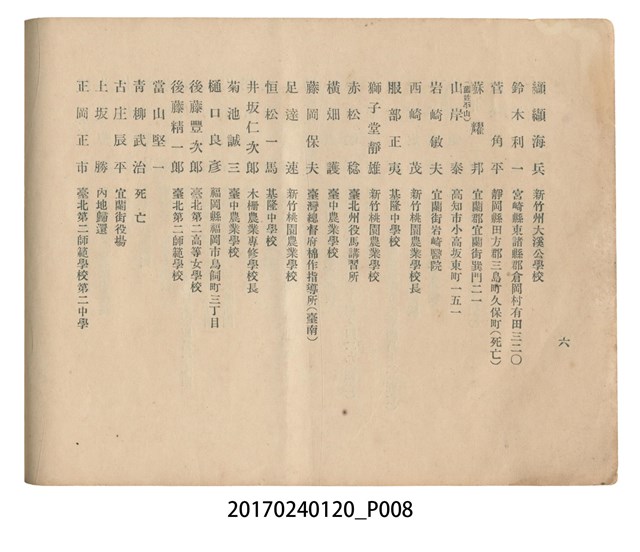 六
纐纈海兵 新竹州大溪公學校
鈴木利一 宮崎縣東諸縣郡倉岡村有田三二〇
菅角平 靜岡縣田方郡三島町久保町(死亡)
蘇耀邦 宜蘭郡宜蘭街巽門二一
山岸泰 高知市小高坂東町一五一
岩崎敏夫 宜蘭街岩崎醫院
西崎茂 新竹桃園農業學校長
服部正夷 基隆中學校
獅子堂靜雄 新竹桃園農業學校
赤松稔 臺北州役馬講習所
橫畑護 臺中農業學校
藤岡保夫 臺灣總督府棉作指導所(臺南)
足達速 新竹桃園農業學校
恒松一馬 基隆中學校
井坂仁次郎 木柵農業專修學校長
菊池誠三 臺中農業學校
樋口良彥 福岡縣福岡市鳥飼町三丁目
後藤豐次郎 臺北第二高等女學校
後藤精一郎 臺北第二師範學校
當山堅一
青柳武治 死亡
古庄辰平 宜蘭街役場
上坂勝 內地歸還
正岡正市 臺北第二師範學校第二中學
20170240120_P008